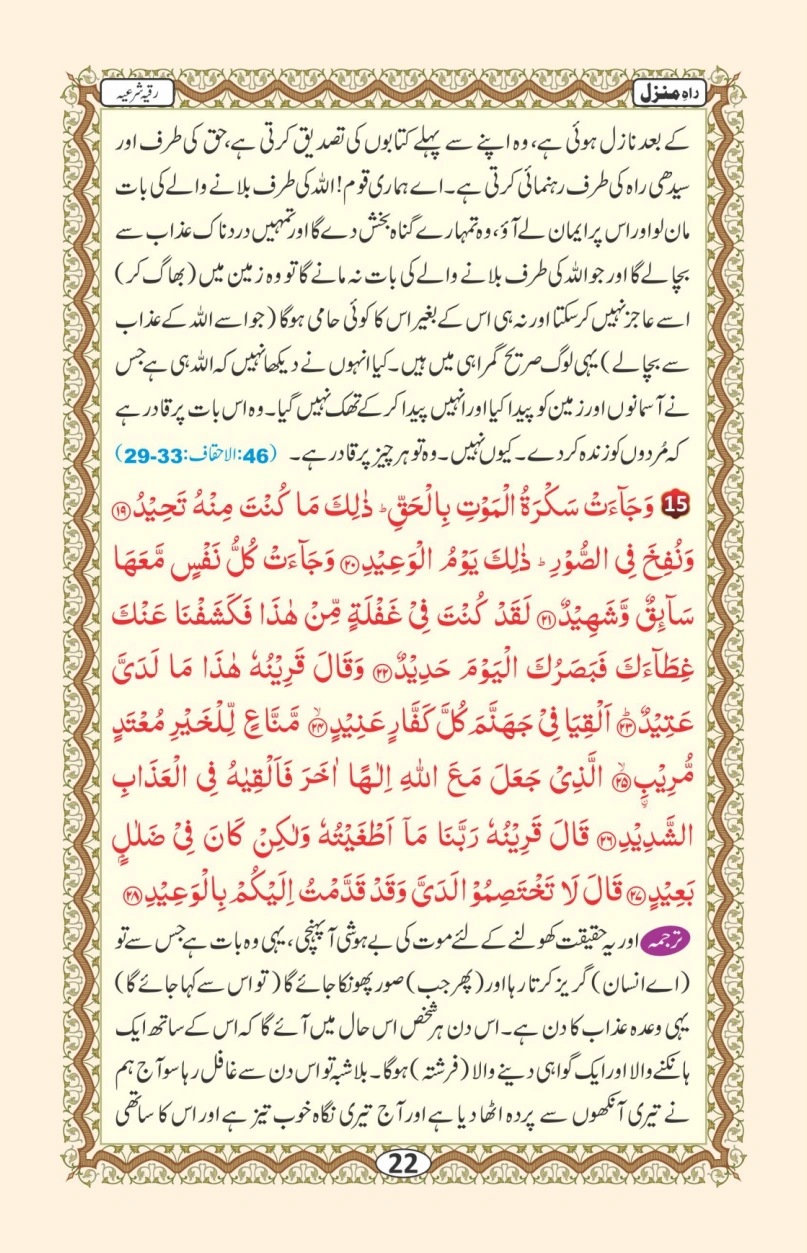 راہِ منزل
رقیہ شرعیہ
کے بعد نازل ہوئی ہے، وہ اپنے سے پہلے کتابوں کی تصدیق کرتی ہے، حق کی طرف اور
سیدھی راہ کی طرف رہنمائی کرتی ہے۔ اے ہماری قوم! اللہ کی طرف بلانے والے کی بات
مان لو اور اس پر ایمان لے آؤ، وہ تمہارے گناہ بخش دے گا اور تمہیں دردناک عذاب سے
بچا لے گا اور جو اللہ کی طرف بلانے والے کی بات نہ مانے گا تو وہ زمین میں (بھاگ کر)
اسے عاجز نہیں کر سکتا اور نہ ہی اس کے بغیر اس کا کوئی حامی ہوگا (جو اسے اللہ کے عذاب
سے بچالے) یہی لوگ صریح گمراہی میں ہیں۔ کیا انہوں نے دیکھا نہیں کہ اللہ ہی ہے جس
نے آسمانوں اور زمین کو پیدا کیا اور انہیں پیدا کر کے تھک نہیں گیا۔ وہ اس بات پر قادر ہے
کہ مُردوں کو زندہ کر دے۔ کیوں نہیں۔ وہ تو ہر چیز پر قادر ہے۔ (46:الاحقاف:33-29)
15 وَجَآءَتْ سَكْرَةُ الْمَوْتِ بِالْحَقِّ ؕ ذٰلِكَ مَا كُنْتَ مِنْهُ تَحِيْدُ ۝۱۹
وَنُفِخَ فِى الصُّوْرِ ؕ ذٰلِكَ يَوْمُ الْوَعِيْدِ ۝۲۰ وَجَآءَتْ كُلُّ نَفْسٍ مَّعَهَا
سَآئِقٌ وَّشَهِيْدٌ ۝۲۱ لَقَدْ كُنْتَ فِىْ غَفْلَةٍ مِّنْ هٰذَا فَكَشَفْنَا عَنْكَ
غِطَآءَكَ فَبَصَرُكَ الْيَوْمَ حَدِيْدٌ ۝۲۲ وَقَالَ قَرِيْنُهٗ هٰذَا مَا لَدَىَّ
عَتِيْدٌ ؕ۝۲۳ اَلْقِيَا فِىْ جَهَنَّمَ كُلَّ كَفَّارٍ عَنِيْدٍ ۙ۝۲۴ مَّنَّاعٍ لِّلْخَيْرِ مُعْتَدٍ
مُّرِيْبِ ۙ۝۲۵ الَّذِىْ جَعَلَ مَعَ اللّٰهِ اِلٰهًا اٰخَرَ فَاَلْقِيٰهُ فِى الْعَذَابِ
الشَّدِيْدِ ۝۲۶ قَالَ قَرِيْنُهٗ رَبَّنَا مَآ اَطْغَيْتُهٗ وَلٰكِنْ كَانَ فِىْ ضَلٰلٍۭ
بَعِيْدٍ ۝۲۷ قَالَ لَا تَخْتَصِمُوْا لَدَىَّ وَقَدْ قَدَّمْتُ اِلَيْكُمْ بِالْوَعِيْدِ ۝۲۸
ترجمہ اور یہ حقیقت کھولنے کے لئے موت کی بے ہوشی آ پہنچی، یہی وہ بات ہے جس سے تو
(اے انسان) گریز کرتا رہا اور (پھر جب) صور پھونکا جائے گا (تو اس سے کہا جائے گا)
یہی وعدہ عذاب کا دن ہے۔ اس دن ہر شخص اس حال میں آئے گا کہ اس کے ساتھ ایک
ہانکنے والا اور ایک گواہی دینے والا (فرشتہ) ہوگا۔ بلاشبہ تو اس دن سے غافل رہا سو آج ہم
نے تیری آنکھوں سے پردہ اٹھا دیا ہے اور آج تیری نگاہ خوب تیز ہے اور اس کا ساتھی
22